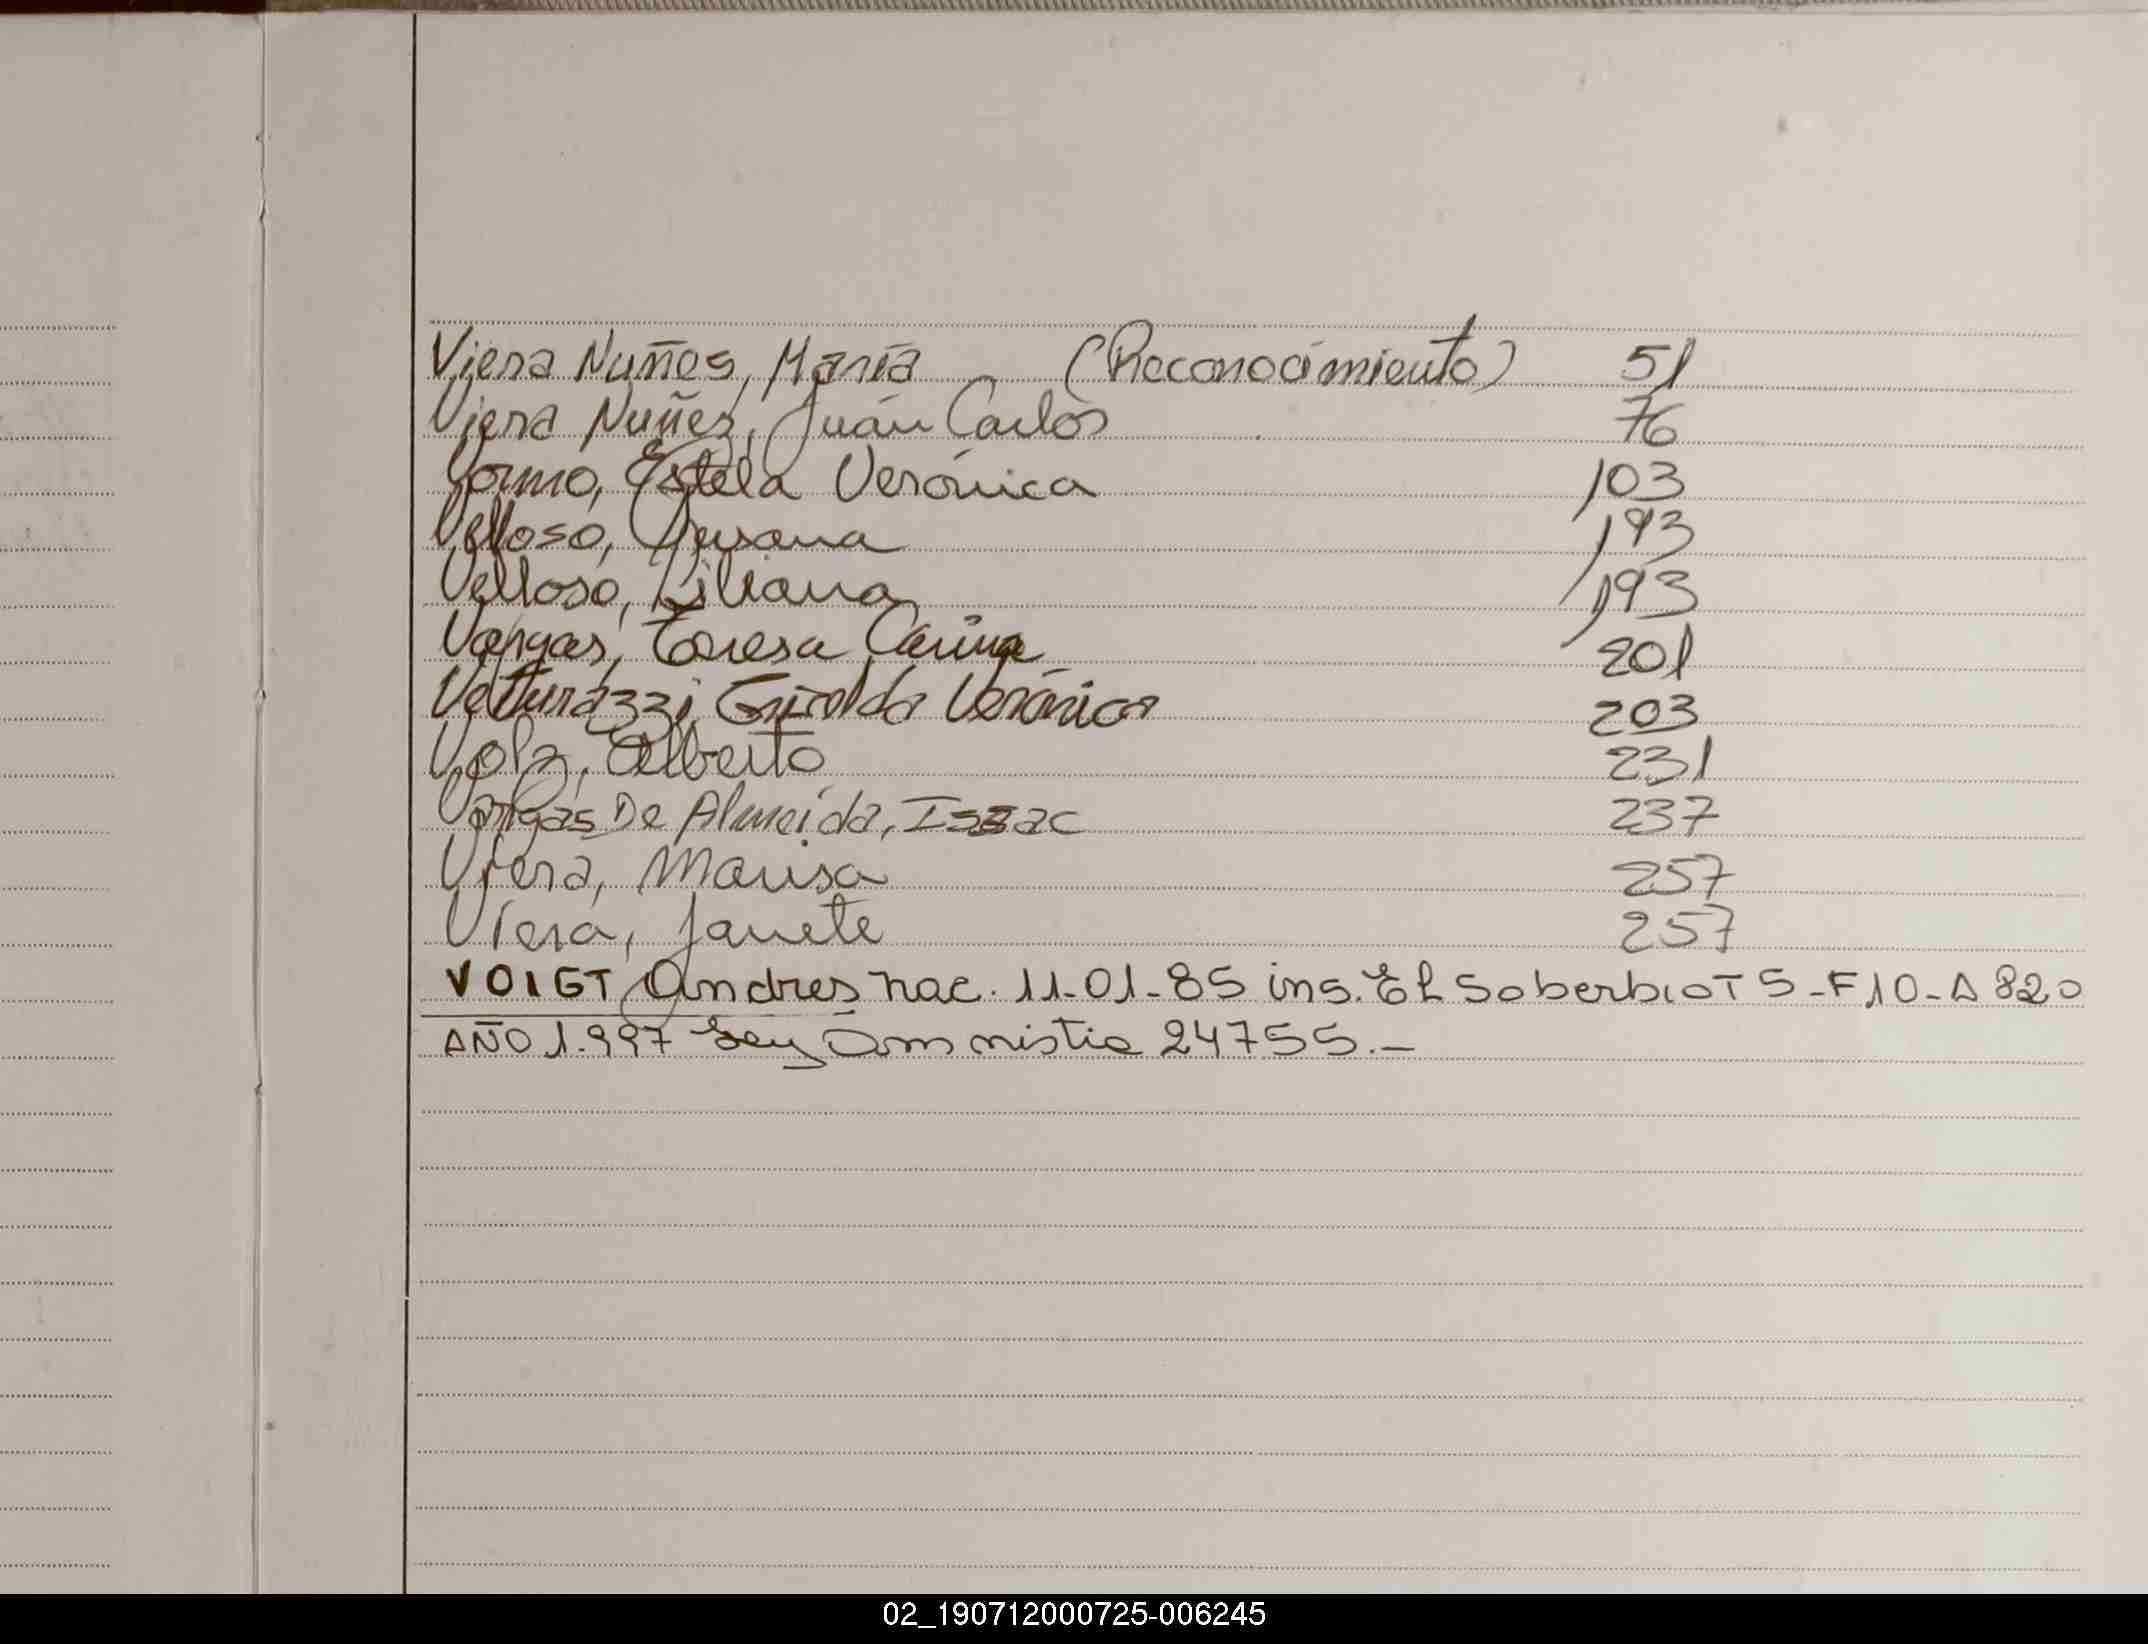 Viera Nuñes, María (Reconocimiento) 51
Viera Nuñez, Juán Carlos 76
Estela Verónica 103
Velloso, 193
Velloso, Liliana 193
Vargas, Teresa Carina 201
Vetturazzi, Griselda Verónica 203
Volz, Alberto 231
Vargas De Almeida, Isaac 237
Viera, Marisa 257
Viera, Janete 257
VOIGT, Andres nac. 11-01-85 ins. El Soberbio T 5-F10-A 820
AÑO 1.997 Ley Amnistia 24755.-
02_190712000725-006245